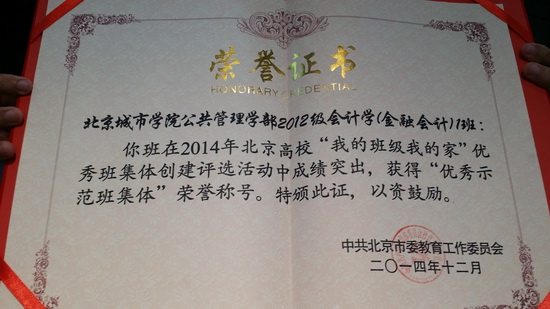 荣誉证书
HONORARY CREDENTIAL
北京城市学院公共管理学部2012级会计学(金融会计)1班：
你班在2014年北京高校“我的班级我的家”优
秀班集体创建评选活动中成绩突出，获得“优秀示
范班集体”荣誉称号。特颁此证，以资鼓励。
中共北京市委教育工作委员会
二〇一四年十二月